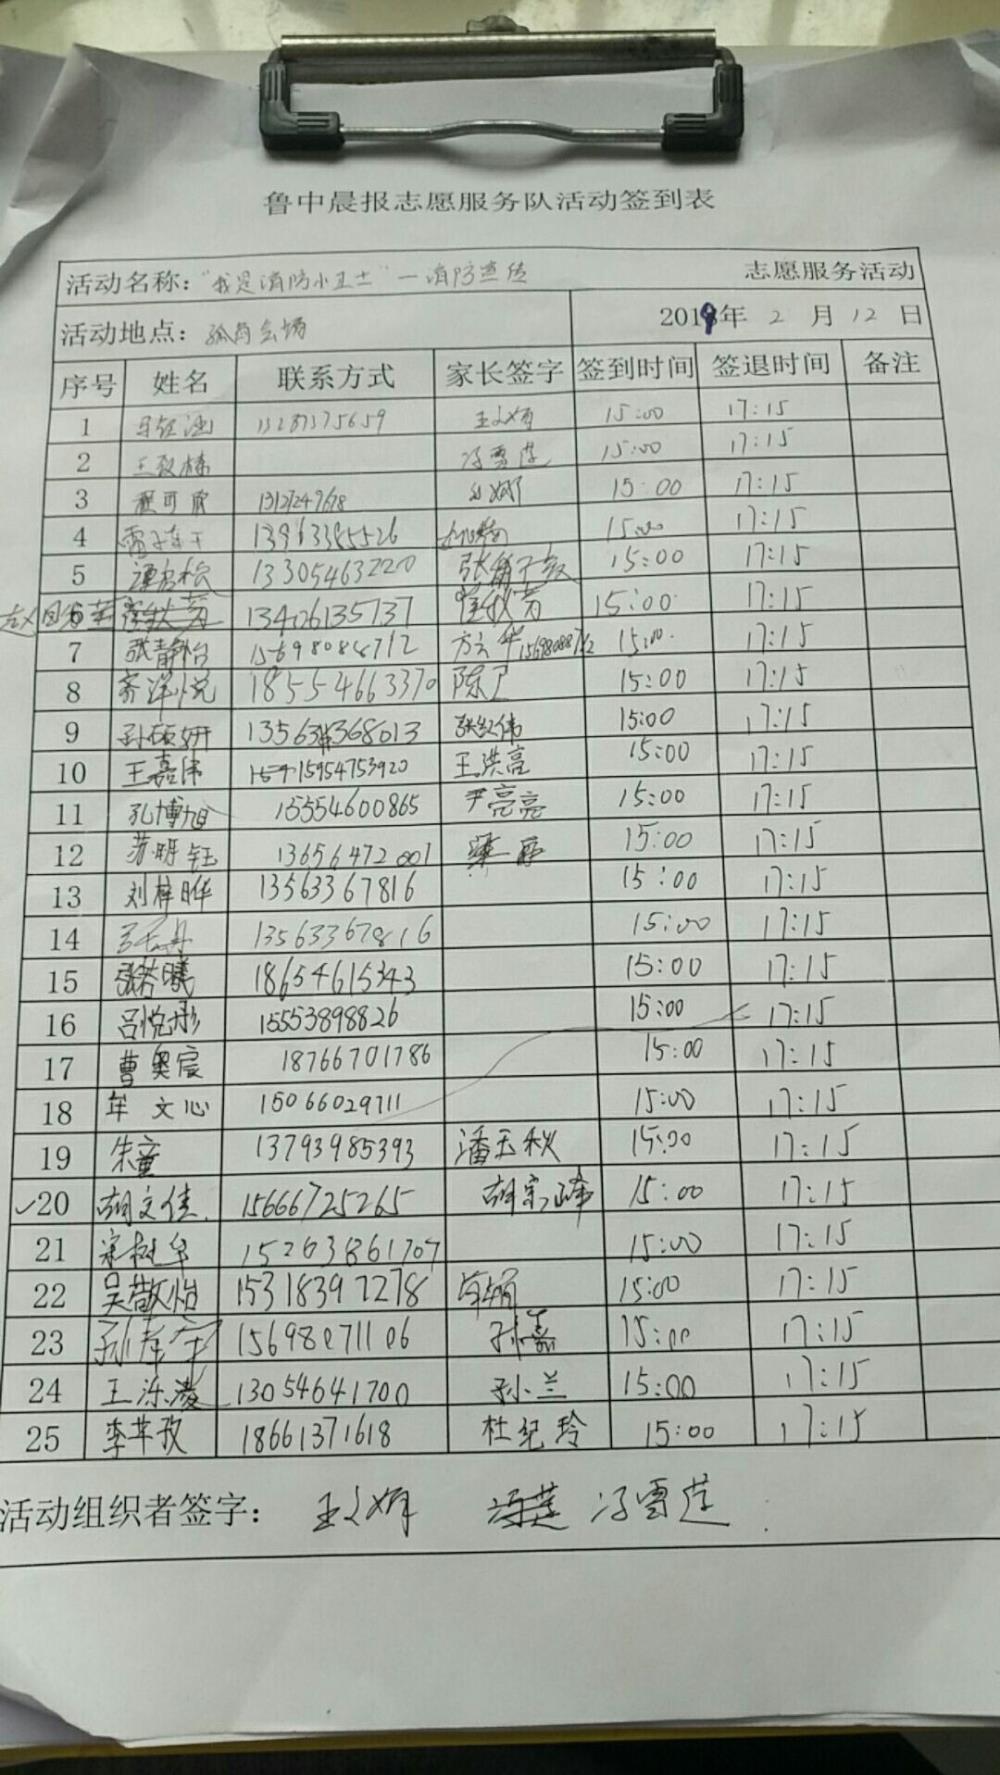 鲁中晨报志愿服务队活动签到表
活动名称：“我是消防小卫士”一消防宣传 志愿服务活动
活动地点： 2019年 2 月 12 日
序号 姓名 联系方式 家长签字 签到时间 签退时间 备注
1 13287375659 王文娟 15:00 17:15
2 冯雪莲 15:00 17:15
3 15:00 17:15
4 13963385526 15:00 17:15
5 13305463220 15:00 17:15
6 13426135737 崔秋芳 15:00 17:15
7 张静怡 15698088712 方云华 15698088712 15:00. 17:15
8 18554663370 陈卫 15:00 17:15
9 孙硕妍 15:00 17:15
10 王嘉伟 15954753920 王洪亮 15:00 17:15
11 孔博旭 15554600865 尹亮亮 15:00 17:15
12 苏明钰 13656472001 15:00 17:15
13 刘梓晔 13563367816 15:00 17:15
14 13563367816 15:00 17:15
15 张若曦 18654615343 15:00 17:15
16 吕悦彤 15553898826 15:00 17:15
17 曹奥宸 18766701786 15:00 17:15
18 牟文心 15066029711 15:00 17:15
19 朱童 13793985393 潘玉秋 15:00 17:15
20 胡文佳 15666725265 胡宗峰 15:00 17:15
21 15263861707 15:00 17:15
22 吴敬怡 15318397278 15:00 17:15
23 15698071106 孙嘉 15:00 17:15
24 王泺凌 13054641700 孙兰 15:00 17:15
25 李苹孜 18661371618 杜纪玲 15:00 17:15
活动组织者签字： 王文娟 冯雪莲